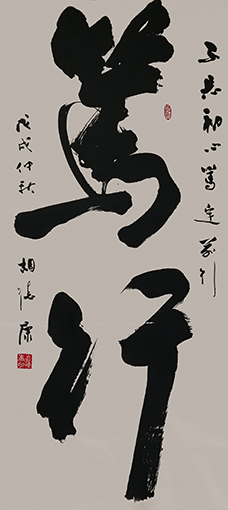 不忘初心篤定前行
篤行
戊戌仲秋
胡 康